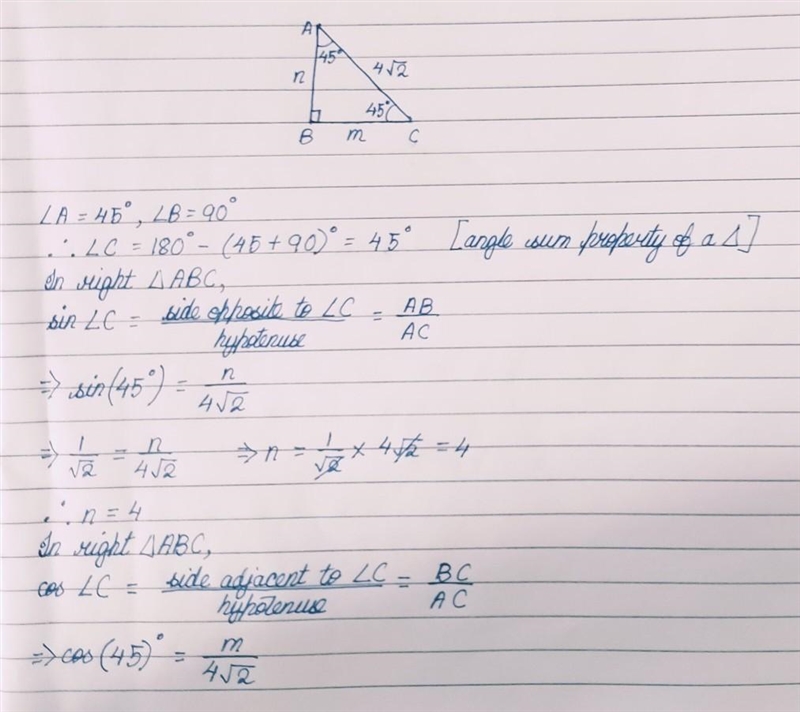 A
45°
n
4√2
45°
B
m
C
∠A = 45°, ∠B = 90°
∴ ∠C = 180° - (45 + 90)° = 45° [angle sum property of a Δ]
In right ΔABC,
sin ∠C = side opposite to ∠C / hypotenuse = AB / AC
⇒ sin(45°) = n / 4√2
⇒ 1/√2 = n / 4√2 ⇒ n = 1/√2 × 4√2 = 4
∴ n = 4
In right ΔABC,
cos ∠C = side adjacent to ∠C / hypotenuse = BC / AC
⇒ cos(45)° = m / 4√2